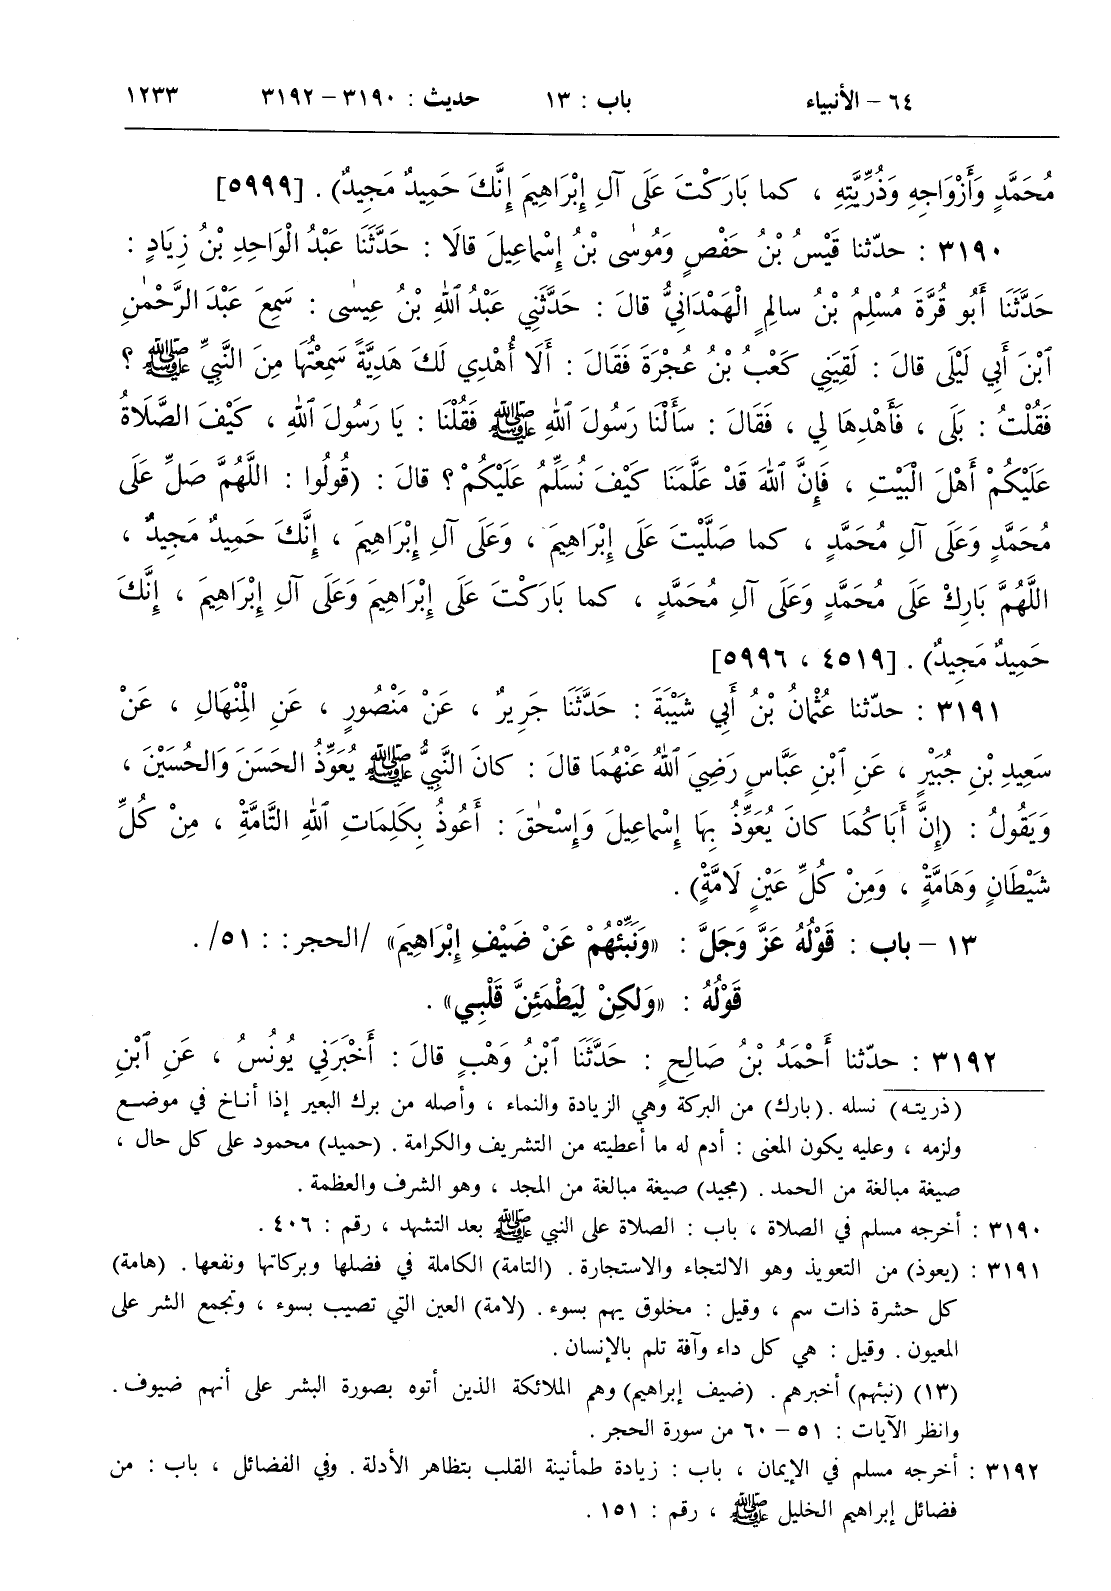 ٦٤ – الأنبياء باب : ١٣ حديث : ٣١٩٠ – ٣١٩٢ ١٢٣٣
مُحَمَّدٍ وَأَزْوَاجِهِ وَذُرِّيَّتِهِ ، كما بَارَكْتَ عَلَى آلِ إِبْرَاهِيمَ إِنَّكَ حَمِيدٌ مَجِيدٌ) . [٥٩٩٩]
٣١٩٠ : حدّثنا قَيْسُ بْنُ حَفْصٍ وَمُوسٰى بْنُ إِسْماعِيلَ قالَا : حَدَّثَنَا عَبْدُ الْوَاحِدِ بْنُ زِيَادٍ :
حَدَّثَنَا أَبُو قُرَّةَ مُسْلِمُ بْنُ سالِمٍ الْهَمْدَانِيُّ قالَ : حَدَّثَنِي عَبْدُ ٱللهِ بْنُ عِيسٰى : سَمِعَ عَبْدَ الرَّحْمٰنِ
ٱبْنَ أَبِي لَيْلَى قالَ : لَقِيَنِي كَعْبُ بْنُ عُجْرَةَ فَقَالَ : أَلَا أُهْدِي لَكَ هَدِيَّةً سَمِعْتُهَا مِنَ النَّبِيِّ ﷺ ؟
فَقُلْتُ : بَلَى ، فَأَهْدِهَا لِي ، فَقَالَ : سَأَلْنَا رَسُولَ ٱللهِ ﷺ فَقُلْنَا : يَا رَسُولَ ٱللهِ ، كَيْفَ الصَّلَاةُ
عَلَيْكُمْ أَهْلَ الْبَيْتِ ، فَإِنَّ ٱللهَ قَدْ عَلَّمَنَا كَيْفَ نُسَلِّمُ عَلَيْكُمْ ؟ قالَ : (قُولُوا : اللَّهُمَّ صَلِّ عَلَى
مُحَمَّدٍ وَعَلَى آلِ مُحَمَّدٍ ، كما صَلَّيْتَ عَلَى إِبْرَاهِيمَ ، وَعَلَى آلِ إِبْرَاهِيمَ ، إِنَّكَ حَمِيدٌ مَجِيدٌ ،
اللَّهُمَّ بَارِكْ عَلَى مُحَمَّدٍ وَعَلَى آلِ مُحَمَّدٍ ، كما بَارَكْتَ عَلَى إِبْرَاهِيمَ وَعَلَى آلِ إِبْرَاهِيمَ ، إِنَّكَ
حَمِيدٌ مَجِيدٌ) . [٤٥١٩ ، ٥٩٩٦]
٣١٩١ : حدّثنا عُثْمانُ بْنُ أَبِي شَيْبَةَ : حَدَّثَنَا جَرِيرٌ ، عَنْ مَنْصُورٍ ، عَنِ الْمِنْهَالِ ، عَنْ
سَعِيدِ بْنِ جُبَيْرٍ ، عَنِ ٱبْنِ عَبَّاسٍ رَضِيَ ٱللهُ عَنْهُمَا قالَ : كانَ النَّبِيُّ ﷺ يُعَوِّذُ الحَسَنَ وَالحُسَيْنَ ،
وَيَقُولُ : (إِنَّ أَبَاكُمَا كانَ يُعَوِّذُ بِهَا إِسْماعِيلَ وَإِسْحٰقَ : أَعُوذُ بِكَلِمَاتِ ٱللهِ التَّامَّةْ ، مِنْ كُلِّ
شَيْطَانٍ وَهَامَّةْ ، وَمِنْ كُلِّ عَيْنٍ لَامَّةْ) .
١٣ – باب : قَوْلُهُ عَزَّ وَجَلَّ : «وَنَبِّئْهُمْ عَنْ ضَيْفِ إِبْرَاهِيمَ» /الحجر: : ٥١/ .
قَوْلُهُ : «وَلكِنْ لِيَطْمَئِنَّ قَلْبِي» .
٣١٩٢ : حدّثنا أَحْمَدُ بْنُ صَالِحٍ : حَدَّثَنَا ٱبْنُ وَهْبٍ قالَ : أَخْبَرَنِي يُونُسُ ، عَنِ ٱبْنِ
(ذريته) نسله . (بارك) من البركة وهي الزيادة والنماء ، وأصله من برك البعير إذا أناخ في موضع
ولزمه ، وعليه يكون المعنى : أدم له ما أعطيته من التشريف والكرامة . (حميد) محمود على كل حال ،
صيغة مبالغة من الحمد . (مجيد) صيغة مبالغة من المجد ، وهو الشرف والعظمة .
٣١٩٠ : أخرجه مسلم في الصلاة ، باب : الصلاة على النبي ﷺ بعد التشهد ، رقم : ٤٠٦ .
٣١٩١ : (يعوذ) من التعويذ وهو الالتجاء والاستجارة . (التامة) الكاملة في فضلها وبركاتها ونفعها . (هامة)
كل حشرة ذات سم ، وقيل : مخلوق يهم بسوء . (لامة) العين التي تصيب بسوء ، وتجمع الشر على
المعيون . وقيل : هي كل داء وآفة تلم بالإنسان .
(١٣) (نبئهم) أخبرهم . (ضيف إبراهيم) وهم الملائكة الذين أتوه بصورة البشر على أنهم ضيوف .
وانظر الآيات : ٥١ – ٦٠ من سورة الحجر .
٣١٩٢ : أخرجه مسلم في الإيمان ، باب : زيادة طمأنينة القلب بتظاهر الأدلة . وفي الفضائل ، باب : من
فضائل إبراهيم الخليل ﷺ ، رقم : ١٥١ .